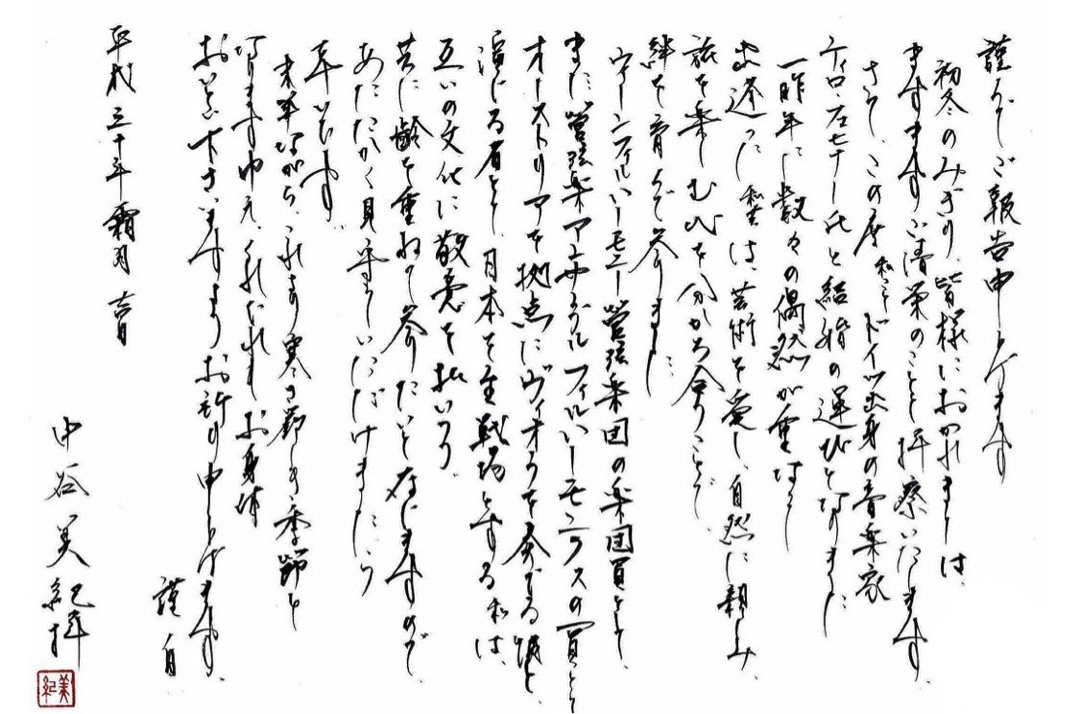 謹んでご報告申し上げます
初冬のみぎり、皆様におかれましては、
ますますご清栄のことと拝察いたします。
さて、この度私こと、ドイツ出身の音楽家
ティロ・フェヒナー氏と結婚の運びとなりました。
一昨年に数々の偶然が重なり
出逢った私共は、芸術を愛し、自然に親しみ、
旅を楽しむ心を分かち合うことで、
絆を育んで参りました。
ウィーンフィルハーモニー管弦楽団の楽団員として、
また管弦楽アンサンブルフィルハーモニクスの一員として
オーストリアを拠点にヴィオラを奏でる彼と、
演じる者として、日本を主戦場とする私は、
互いの文化に敬意を払いつつ、
共に齢を重ねて参りたいと存じますので、
あたたかく見守っていただけましたら
幸いです。
末筆ながら、これより寒さ厳しき季節と
なりますゆえ、くれぐれもお身体
おいとい下さいますようお祈り申し上げます。
謹白
平成三十年霜月吉日
中谷美紀拝
美紀